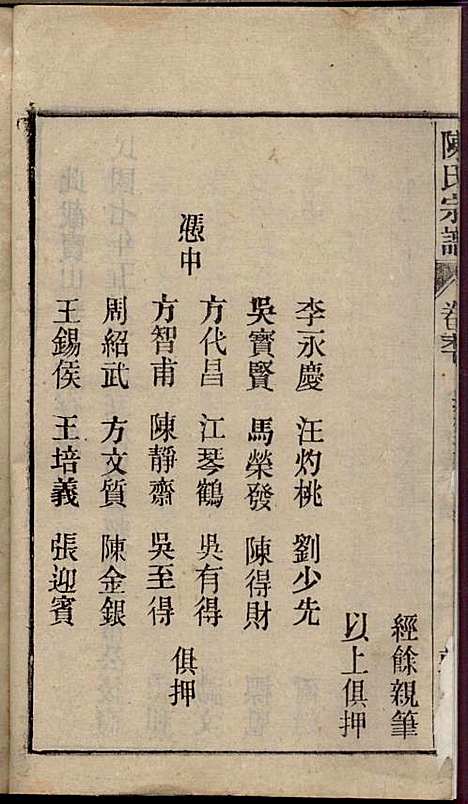 陳氏宗譜 卷首
經餘親筆
以上俱押
李永慶 汪灼桃 劉少先
吳寶賢 馬榮發 陳得財
方代昌 江琴鶴 吳有得
憑中 俱押
方智甫 陳靜齋 吳至得
周紹武 方文質 陳金銀
王錫侯 王培義 張迎賓